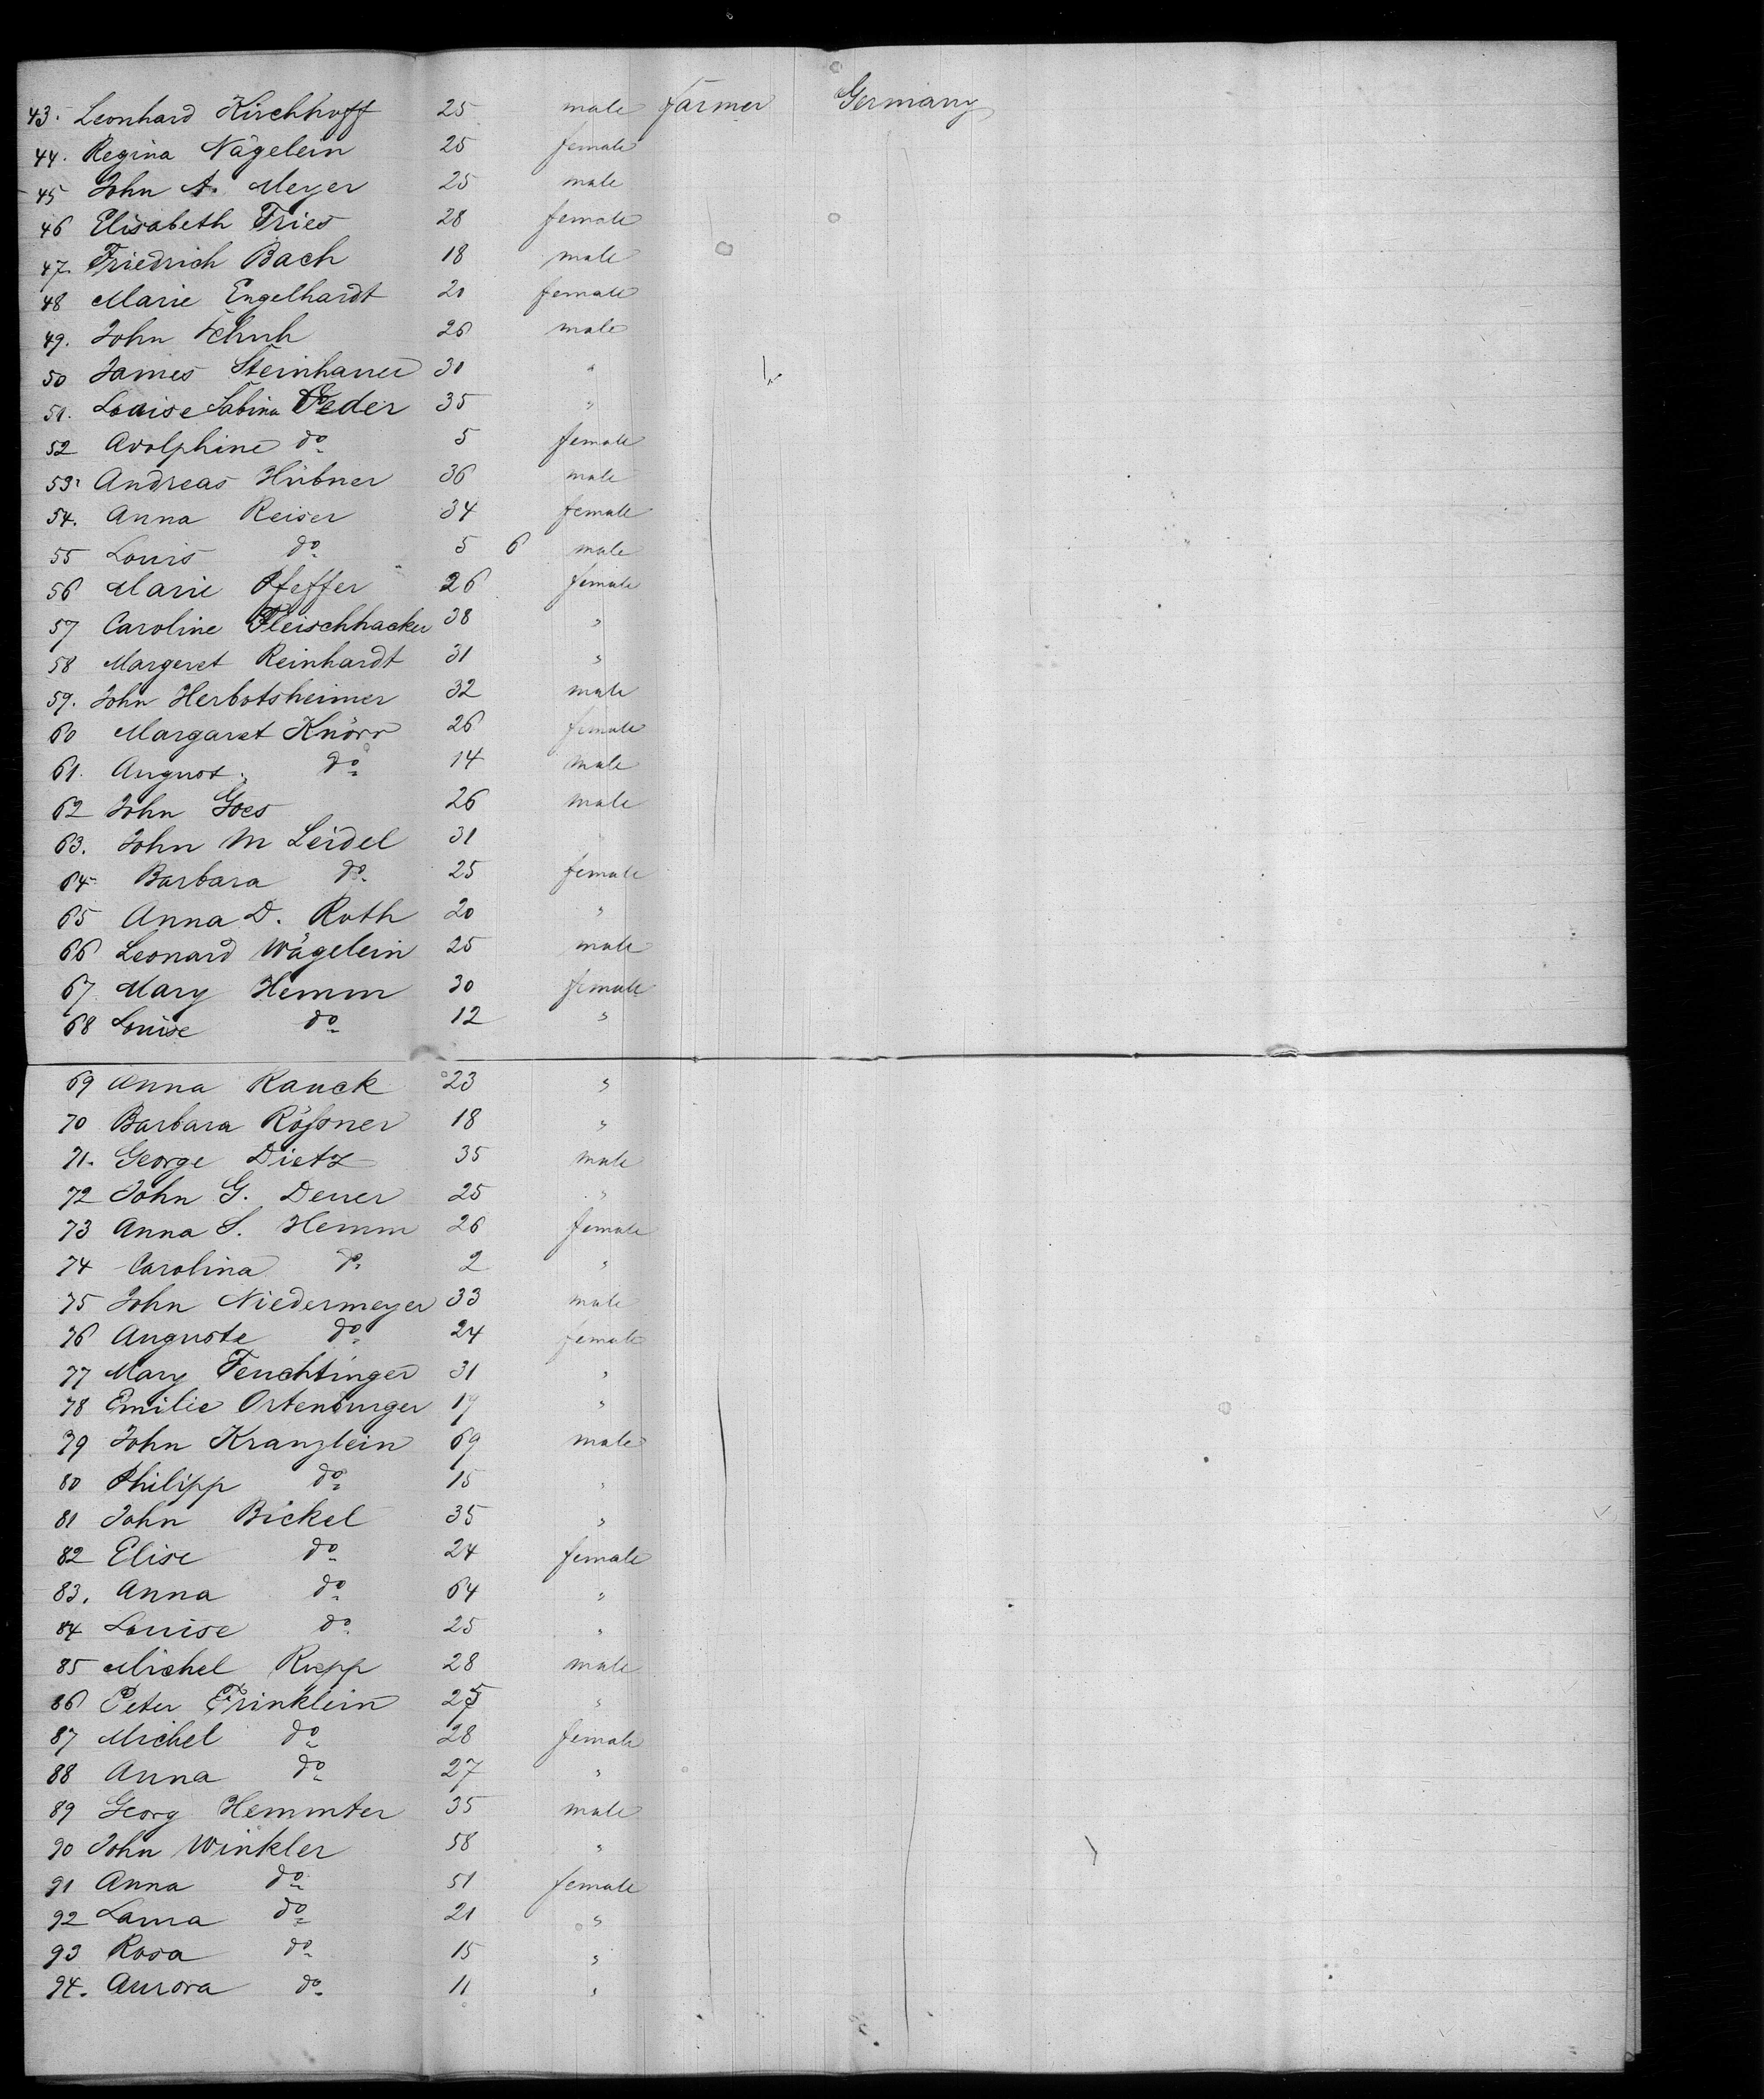 43. Leonhard Kirchhoff 25 male farmer Germany
44. Regina Nägelein 25 female
45 John A. Meyer 25 male
46 Elisabeth Fries 28 female
47. Friedrich Bach 18 male
48 Marie Engelhardt 21 female
49. John Schuh 26 male
50 James Steinhauer 30 "
51. Louise Sabina Oeder 35 "
52 Adolphine do 5 female
53. Andreas Hübner 36 male
54. Anna Reiser 34 female
55 Louis do 5 6 male
56 Marie Pfeffer 26 female
57 Caroline Fleischhacker 38 "
58 Margeret Reinhardt 31 "
59. John Herbotsheimer 32 male
60 Margaret Knörr 26 female
61. August do 14 male
62 John Goes 26 male
63. John M Leidel 31
64 Barbara do 25 female
65 Anna D. Roth 20 "
66 Leonard Wägelein 25 male
67 Mary Hemm 30 female
68 Louise do 12 "
69 Anna Rauck 23 "
70 Barbara Rößner 18 "
71. George Dietz 35 male
72 John G. Derrer 25 "
73 Anna S. Hemm 26 female
74 Carolina do 2 "
75 John Niedermeyer 33 male
76 Auguste do 24 female
77 Mary Feuchtinger 31 "
78 Emilie Ortenburger 19 "
79 John Kranzlein 69 male
80 Philipp do 15 "
81 John Bickel 35 "
82 Elise do 24 female
83. Anna do 64 "
84 Louise do 25 "
85 Michel Rupp 28 male
86 Peter Frinklein 25 "
87 Michel do 28 female
88 Anna do 27 "
89 Georg Hemmter 35 male
90 John Winkler 58 "
91 Anna do 51 female
92 Laura do 21 "
93 Rosa do 15 "
94. Aurora do 11 "